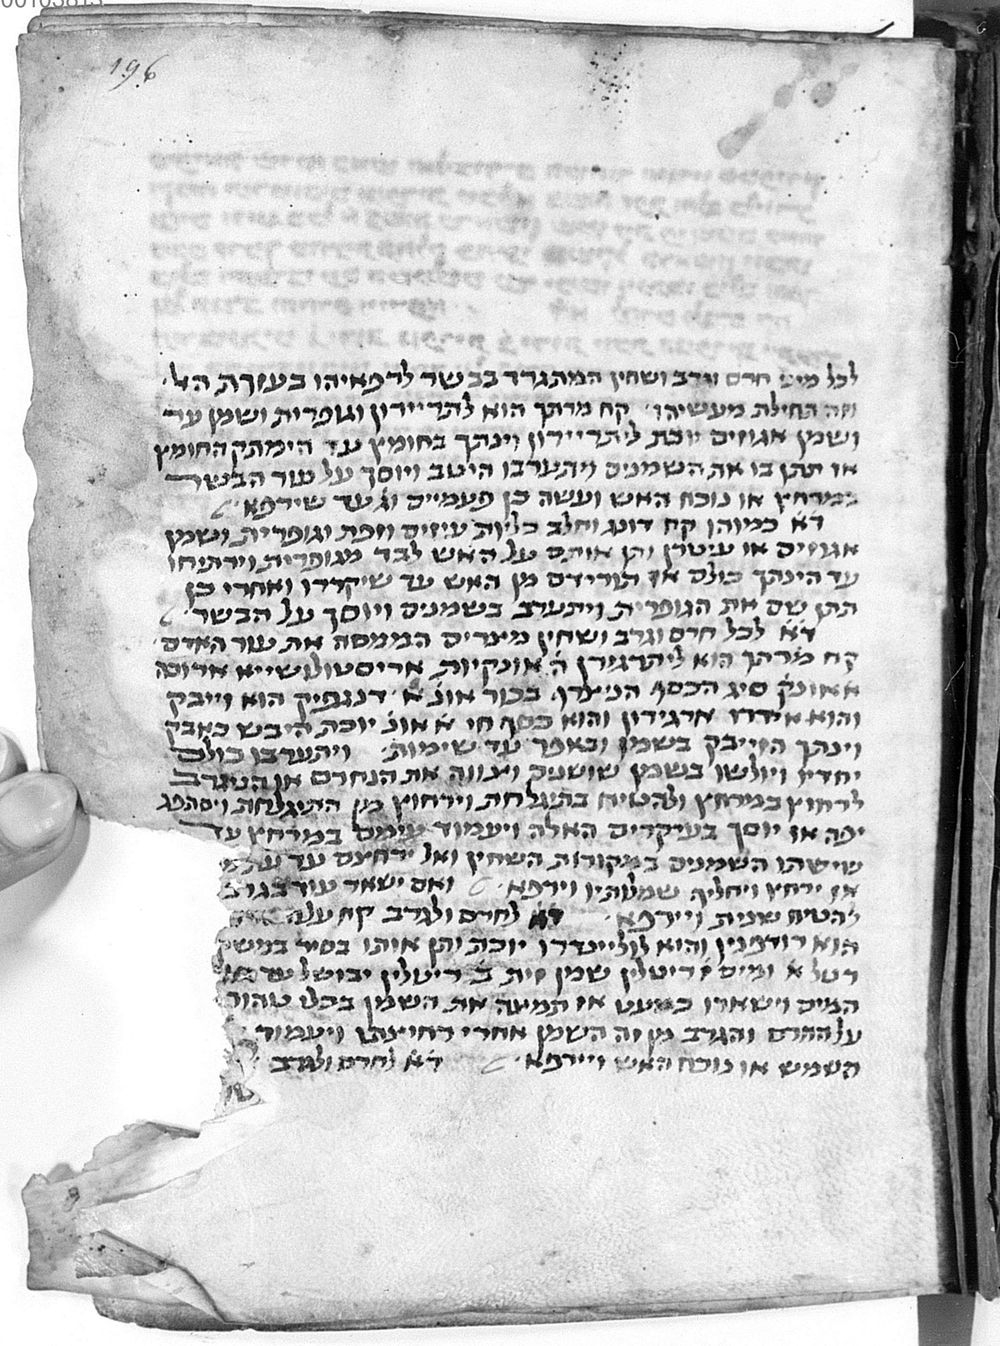 196
לכל מיני חרס וגרב ושחין המתגרד בבשר לרפאיהו בעזרת האל
וזה תחילת מעשיהו קח מרתך הוא לתריירון וגופרית ושמן עד
ושמן אגוזים יוכת ליתריירון וינתך בחומץ עד הימתק החומץ
אז תתן בו את השמנים ויתערבו היטב ויוסך על עור הבשר
במרחץ או נוכח האש ועשה כן פעמיים וג עד שירפא
ד״א כמיהו קח דונג וחלב כליות עיזים וזפת וגופרית ושמן
אגוזים או עיטרן ותן אותם על האש לבד מגופרית וירתיחו
עד הינתך כולם אז תורידם מן האש עד שיקררו ואחרי כן
תתן שם את הגופרית ויתערב בשמנים ויוסך על הבשר
ד״א לכל חרס וגרב ושחין מצרים הממסה את עור האדם
קח מרתך הוא ליתרגירון ה אונקיות אריסטולוגייא ארוכה
א אונק סיג הכסף הניצרף בכור אונ א דנגפיק הוא זייבק
והוא אידרו ארגירון והוא כסף חי א אונ יוכת היבש כאבק
וינתך הזייבק בשמן ובאפר עד שימות ויתערבו כולם
יחדיו ויולשו בשמן שושנים ויצווה את הנחרס או הנגרב
לרחוץ במרחץ ולהטיח בתיגלחת וירחוץ מן התיגלחת ויסתפג
יפה אז יוסך בעיקרים האלה ויעמוד עימם במרחץ עד
שישתו השמנים במקורות השחין ואל ירחצם עד
אז ירחץ ויחליף שמלותיו וירפא ואם ישאר עוד בגרב
להטיח שנית ויירפא ד״א לחרס ולגרב קח עלה
הוא רודפנין והוא לוליינדרו יוכת ותן אותו בסיר במשקל
רטל א ומים ו ריטלין שמן זית ב ריטלין יבושל עד
המים וישארו כמעט אז תמצה את השמן בכלי טהור
על החרס והגרב מן זה השמן אחרי רחיצתו ויעמוד
השמש או נוכח האש ויירפא ד״א לחרס ולגרב